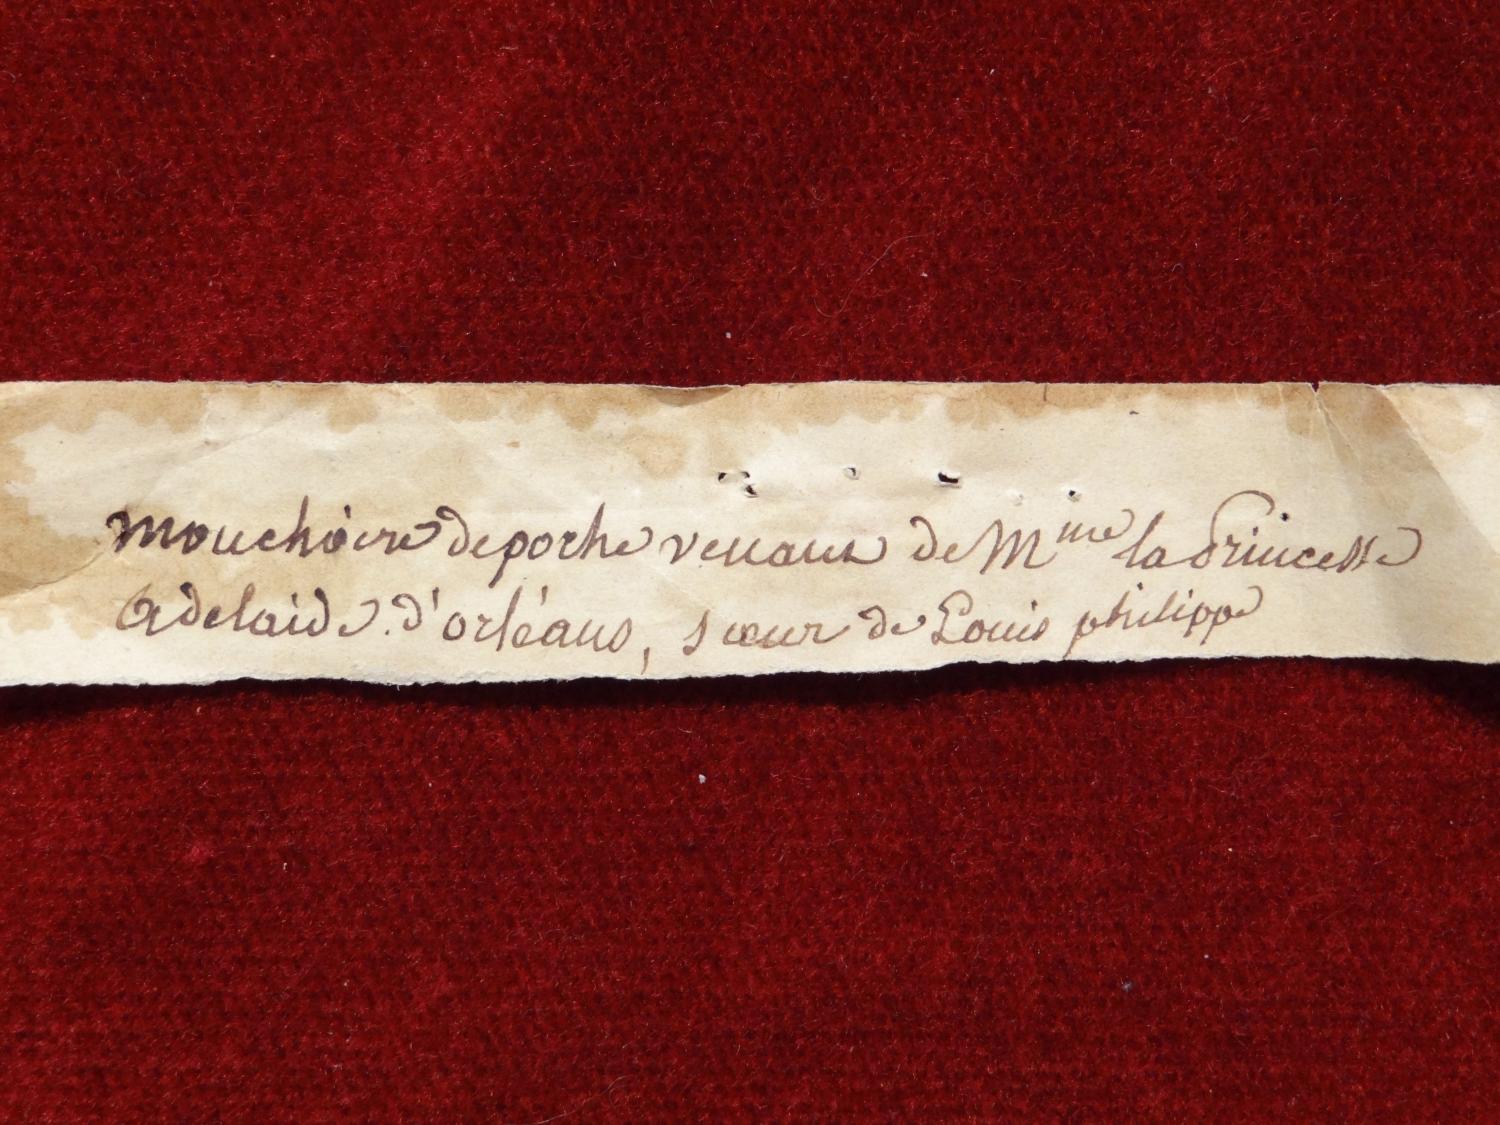 mouchoire de poche venant de Mme la Princesse
Adelaide d'orléans, sœur de Louis philippe